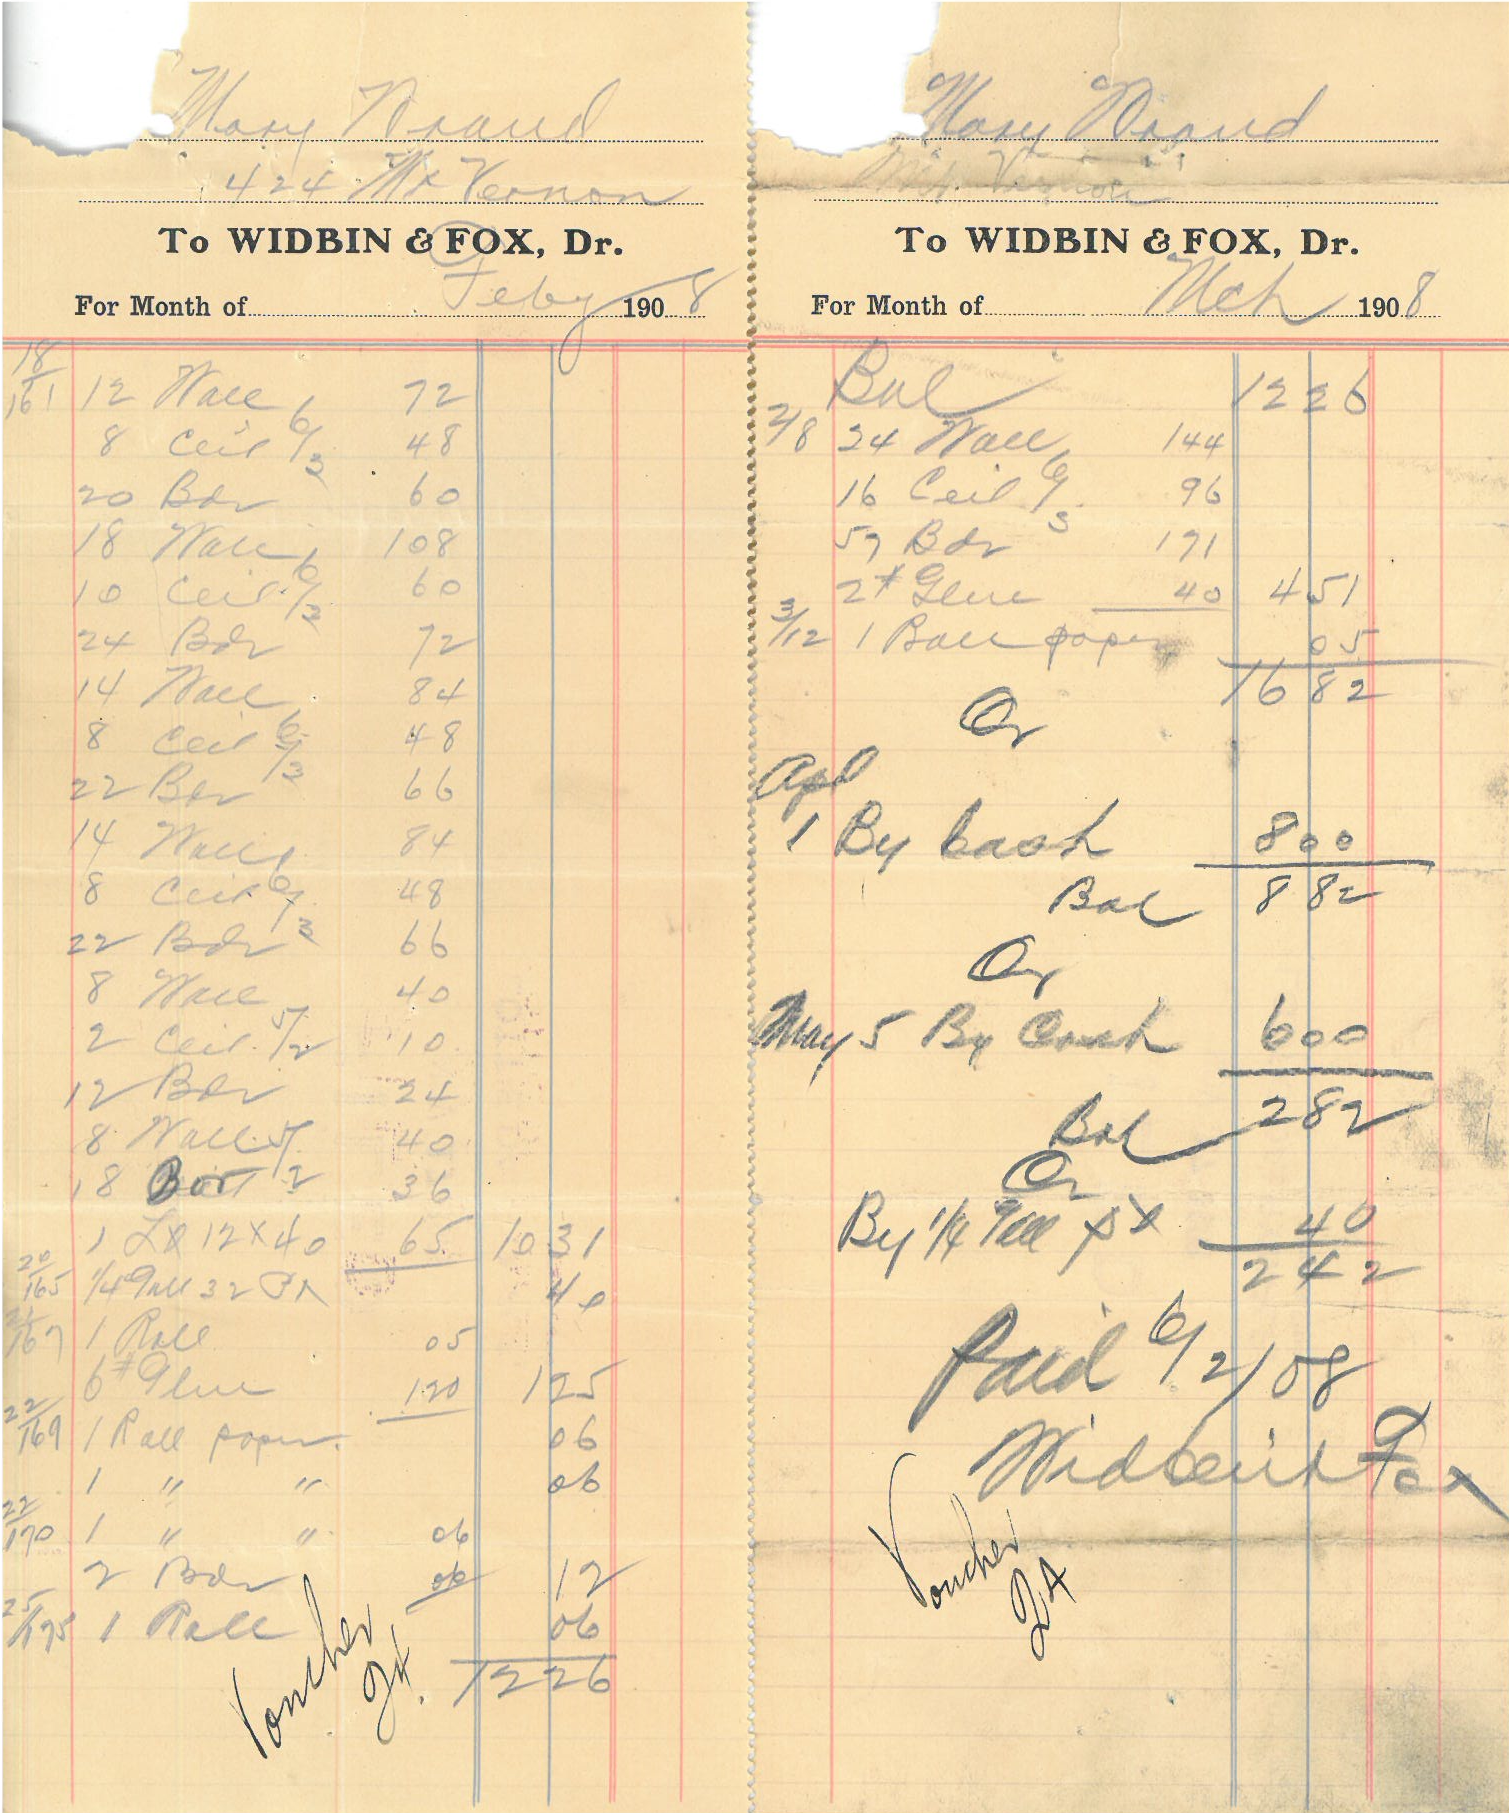 Mary Braud
424 Mt Vernon
To WIDBIN & FOX, Dr.
For Month of Feby 1908
18/161 12 Wall 72
8 Ceil 6/3 48
20 Bdr 60
18 Wall 108
10 Ceil 6/3 60
24 Bdr 72
14 Wall 84
8 Ceil 6/3 48
22 Bdr 66
14 Wall 84
8 Ceil 6/3 48
22 Bdr 66
8 Wall 40
2 Ceil 5/2 10
12 Bdr 24
8 Wall 5/2 40
18 Bor 36
1 12 x 40 65 10 31
20/165 1/4 Gall 32 40
167 1 Roll 05
6# Glue 120 1 25
22/169 1 Roll paper 06
1 " " 06
22/170 1 " " 06
2 Bdr 06 12
25/175 1 Roll 06
12 26
Voucher 24
Mary Braud
Mt. Vernon
To WIDBIN & FOX, Dr.
For Month of Mch 1908
Bal 12 26
2/8 24 Wall 144
16 Ceil 6/3 96
57 Bdr 171
2# Glue 40 4 51
3/12 1 Ball paper 05
16 82
Cr
Apl
1 By Cash 8 00
Bal 8 82
Cr
May 5 By Cash 6 00
Bal 2 82
Cr
By 1/4 Gall 40
2 42
Paid 6/2/08
Widbin & Fox
Voucher 24